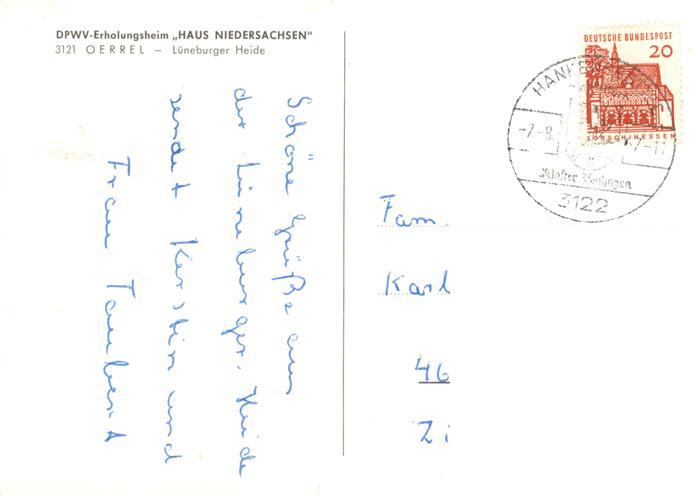 DPWV-Erholungsheim „HAUS NIEDERSACHSEN"
3121 OERREL – Lüneburger Heide
Schöne Grüße aus
der Lüneburger Heide
sendet Kerstin und
Frau Taubert
DEUTSCHE BUNDESPOST
20
LORSCH/HESSEN
-7.-8.
Kloster
3122
Fam.
Karl
46
Zi